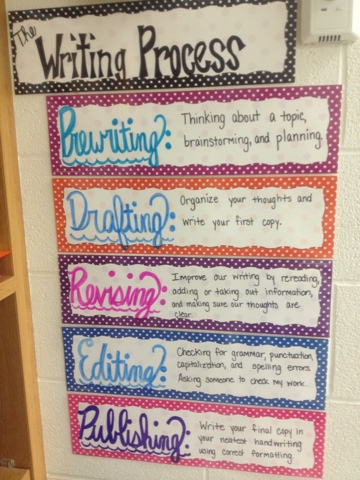 The Writing Process
Prewriting:
Thinking about a topic,
brainstorming, and planning.
Drafting:
Organize your thoughts and
write your first copy.
Revising:
Improve our writing by rereading,
adding or taking out information,
and making sure our thoughts are
clear.
Editing:
Checking for grammar, punctuation,
capitalization, and spelling errors.
Asking someone to check my work.
Publishing:
Write your final copy in
your neatest handwriting
using correct formatting.